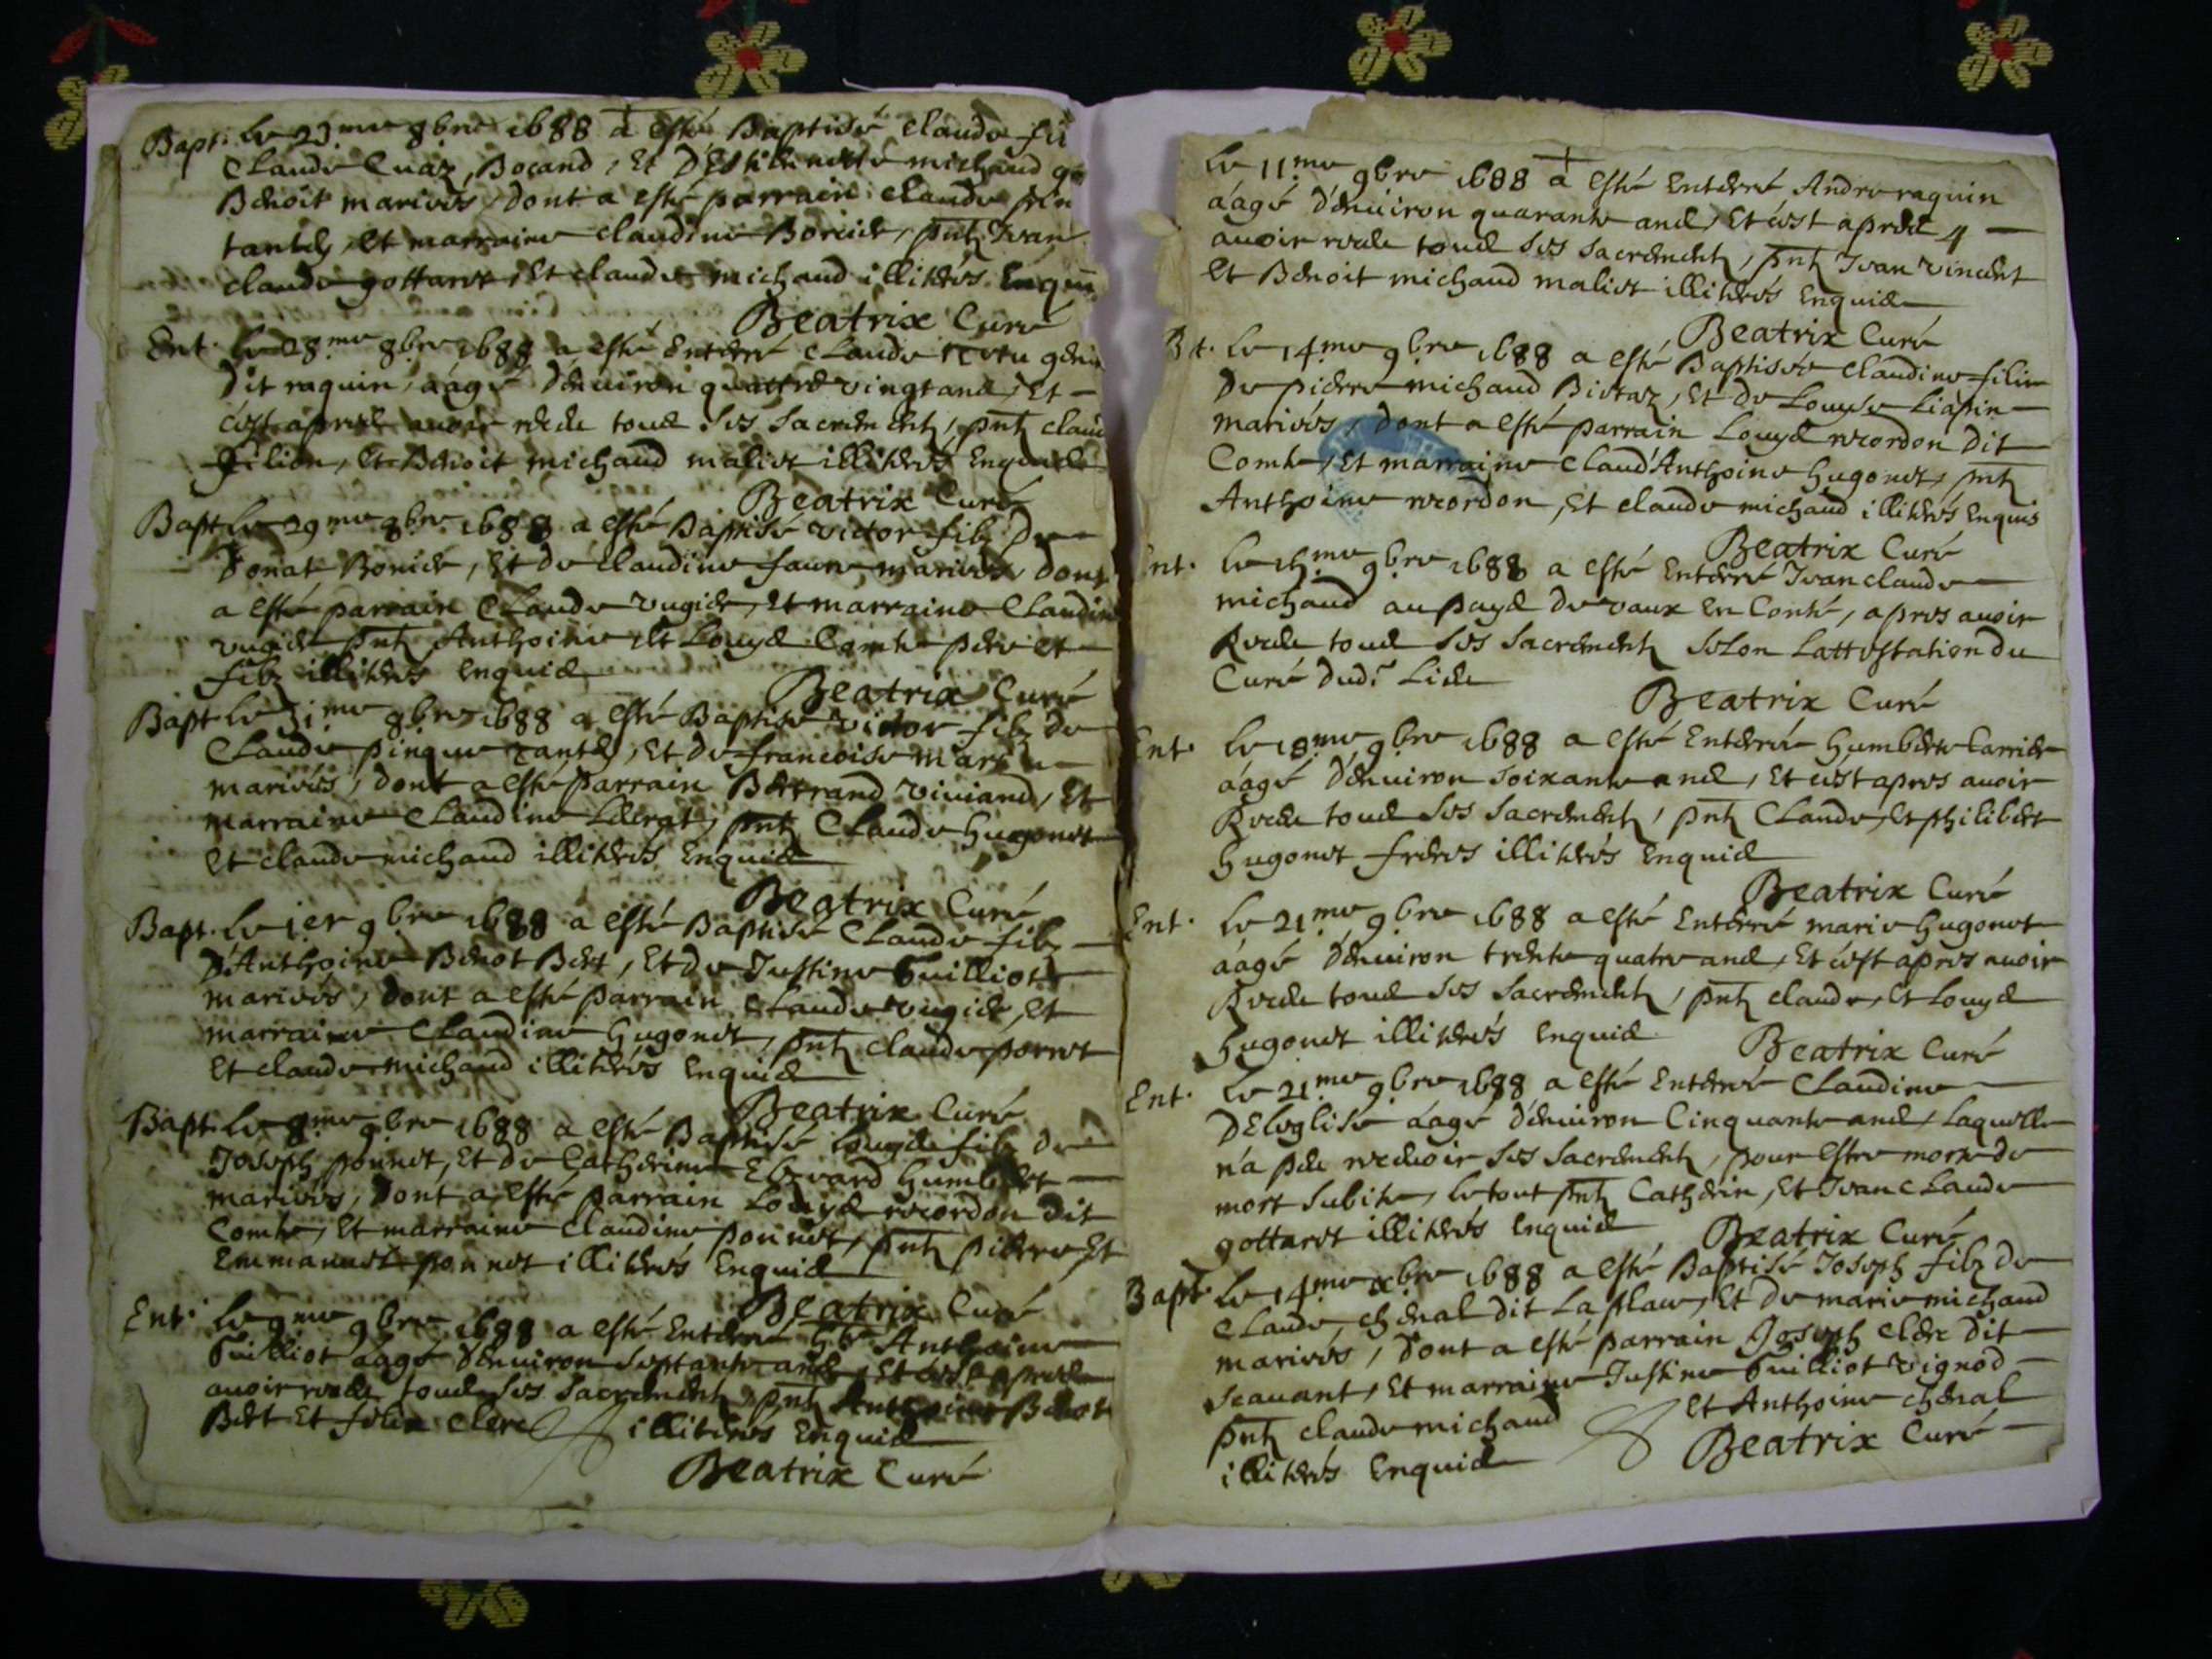 Bapt. Le 23me 8bre 1688 a esté Baptisé Claude
Claude Cuaz, Boçand, Et D'Estiennette michaud
Benoit mariées, dont a esté parrain Claude
tantes, Et marraine Claudine Borcier, pnts Jean
Claude gottaret, Et Claude michaud illiterés
Beatrix Curé
Ent. 8bre 1688 a esté Enterré Claude
Dit raquin, aagé D'enuiron quattre vingt ans, Et
c'est apres auoir receu tous ses Sacrements, pnts
Et Benoit michaud maliet illiterés Enquis
Beatrix Curé
Bapt Le 29me 8bre 1688 a esté Baptisé victor filz De
Donat Bonier, Et de Claudine faure mariées Dont
a esté parrain Claude vugier, Et marraine
vugier pnts Anthoine Et Louys Comte pere Et
filz illiterés Enquis
Beatrix Curé
Bapt Le 31me 8bre 1688 a esté Baptisé victor filz de
Claude pingue tantes, Et de francoise
mariées, dont a esté parrain Bertrand viuiand, Et
marraine Claudine pnts Claude Hugonet
Et Claude michaud illiterés Enquis
Beatrix Curé
Bapt. Le ier 9bre 1688 a esté Baptisé Claude filz
D'Anthoine Benot Bert, Et de Justine Guilliot
mariées, dont a esté parrain Claude vugier, Et
marraine Claudine Hugonet, pnts Claude porret
Et Claude michaud illiterés Enquis
Beatrix Curé
Bapt. Le 8me 9bre 1688 a esté Baptisé Louys filz de
Joseph ponnet, Et de Catherine Humbert
mariées, dont a esté parrain Louys recordon Dit
Comte, Et marraine Claudine ponnet, pnts pierre Et
Emmanuel ponnet illiterés Enquis
Beatrix Curé
Ent. Le 9me 9bre 1688 a esté Enterré Anthoine
Guilliot aagé D'enuiron septante ans, Et c'est apres
auoir receu tous ses Sacrements, pnts Anthoine Benot
Bert Et felix Clerc illiterés Enquis
Beatrix Curé
Le 11me 9bre 1688 a esté Enterré Andre raquin
aagé D'enuiron quarante ans, Et c'est apres
auoir receu tous ses Sacrements, pnts Jean vincent
Et Benoit michaud maliet illiterés Enquis
Beatrix Curé
Le 14me 9bre 1688 a esté Baptisée Claudine fillie
De pierre michaud Bietaz, Et de Louyse Liapin
mariées, dont a esté parrain Louys recordon Dit
Comte, Et marraine Claud'Anthoine Hugonet, pnts
Anthoine recordon, Et Claude michaud illiterés Enquis
Beatrix Curé
Ent. Le 15me 9bre 1688 a esté Enterré Jean Claude
michaud au pays de vaux En Conté, apres auoir
Receu tous ses Sacrements selon Lattestation du
Curé dudt Lieu
Beatrix Curé
Ent. Le 18me 9bre 1688 a esté Enterrée Humberte Carrier
aagé D'enuiron soixante ans, Et c'est apres auoir
Receu tous ses Sacrements, pnts Claude, Et philibert
Hugonet freres illiterés Enquis
Beatrix Curé
Ent. Le 21me 9bre 1688 a esté Enterré marie Hugonet
aagé D'enuiron trente quatre ans, Et c'est apres auoir
Receu tous ses Sacrements, pnts Claude, Et Louys
Hugonet illiterés Enquis
Beatrix Curé
Ent. Le 21me 9bre 1688 a esté Enterrée Claudine
DEleglise aagé D'enuiron Cinquante ans, Laquelle
n'a peu receuoir ses Sacrements, pour estre morte de
mort subite, Le tout pnts Catherin, Et Jean Claude
gottaret illiterés Enquis
Beatrix Curé
Bapt. Le 14me xbre 1688 a esté Baptisé Joseph filz de
Claude cheual dit La place, Et de marie michaud
mariées, dont a esté parrain Joseph Clerc dit
Scauant, Et marraine Justine Guilliot vignod
pnts Claude michaud Et Anthoine cheual
illiterés Enquis
Beatrix Curé